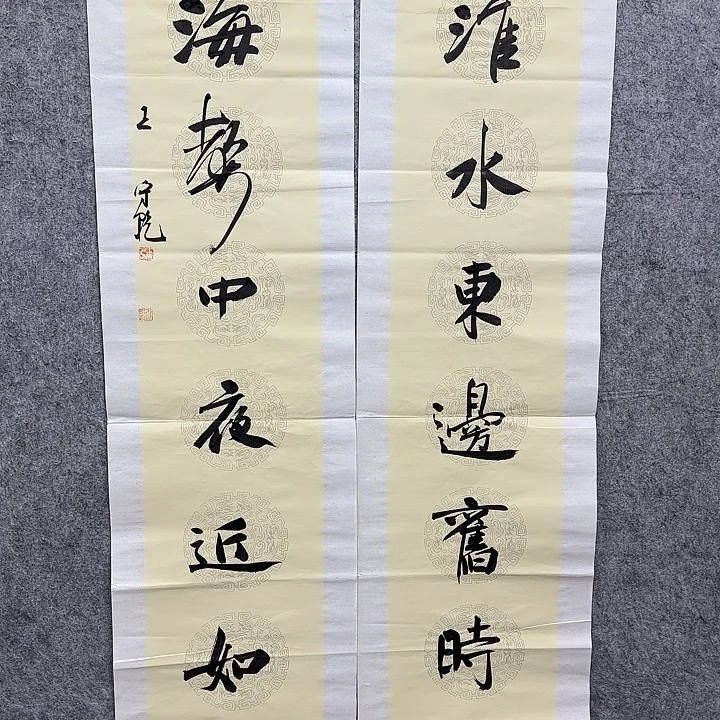 淮水東邊舊時
海聲中夜近如
王守乾